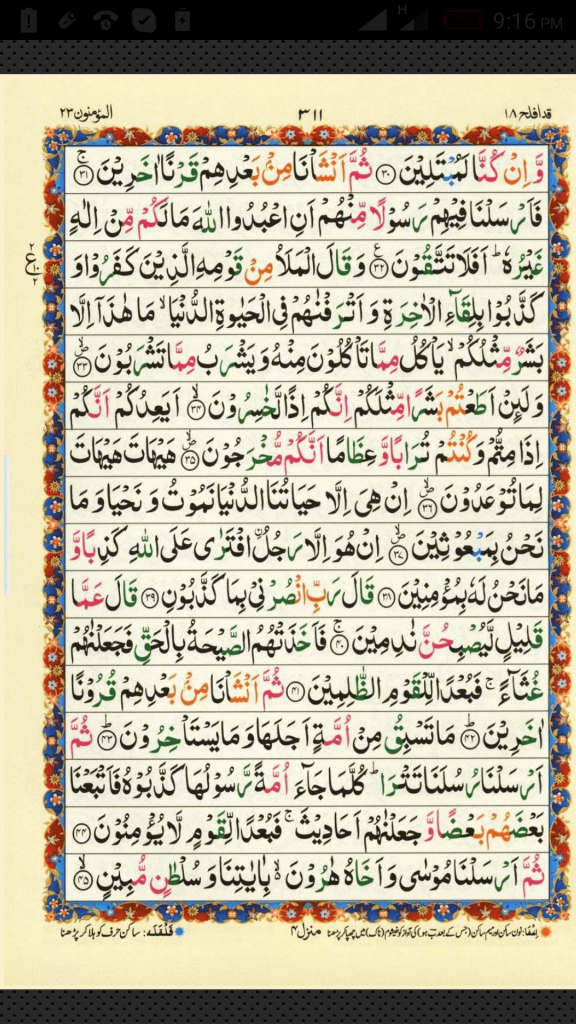 H 7% 9:16 PM
المؤمنون ٢٣ ٣١١ قد افلح ١٨
وَّاِنْ كُنَّا لَمُبْتَلِيْنَ ۝۳۰ ثُمَّ اَنْشَاْنَا مِنْۢ بَعْدِهِمْ قَرْنًا اٰخَرِيْنَ ۝ۚ۳۱
فَاَرْسَلْنَا فِيْهِمْ رَسُوْلًا مِّنْهُمْ اَنِ اعْبُدُوا اللّٰهَ مَا لَكُمْ مِّنْ اِلٰهٍ
غَيْرُهٗ ؕ اَفَلَا تَتَّقُوْنَ ۝۳۲ وَقَالَ الْمَلَاُ مِنْ قَوْمِهِ الَّذِيْنَ كَفَرُوْا وَ
كَذَّبُوْا بِلِقَآءِ الْاٰخِرَةِ وَ اَتْرَفْنٰهُمْ فِى الْحَيٰوةِ الدُّنْيَا ۙ مَا هٰذَاۤ اِلَّا
بَشَرٌ مِّثْلُكُمْ ۙ يَاْكُلُ مِمَّا تَاْكُلُوْنَ مِنْهُ وَيَشْرَبُ مِمَّا تَشْرَبُوْنَ ۝۳۳
وَلَئِنْ اَطَعْتُمْ بَشَرًا مِّثْلَكُمْ اِنَّكُمْ اِذًا لَّخٰسِرُوْنَ ۝ۙ۳۴ اَيَعِدُكُمْ اَنَّكُمْ
اِذَا مِتُّمْ وَكُنْتُمْ تُرَابًا وَّ عِظَامًا اَنَّكُمْ مُّخْرَجُوْنَ ۝۳۵ هَيْهَاتَ هَيْهَاتَ
لِمَا تُوْعَدُوْنَ ۝۳۶ اِنْ هِىَ اِلَّا حَيَاتُنَا الدُّنْيَا نَمُوْتُ وَ نَحْيَا وَ مَا
نَحْنُ بِمَبْعُوْثِيْنَ ۝۳۷ اِنْ هُوَ اِلَّا رَجُلُ اۨفْتَرٰى عَلَى اللّٰهِ كَذِبًا وَّ
مَا نَحْنُ لَهٗ بِمُؤْمِنِيْنَ ۝۳۸ قَالَ رَبِّ انْصُرْنِىْ بِمَا كَذَّبُوْنِ ۝۳۹ قَالَ عَمَّا
قَلِيْلٍ لَّيُصْبِحُنَّ نٰدِمِيْنَ ۝ۚ۴۰ فَاَخَذَتْهُمُ الصَّيْحَةُ بِالْحَقِّ فَجَعَلْنٰهُمْ
غُثَآءً ۚ فَبُعْدًا لِّلْقَوْمِ الظّٰلِمِيْنَ ۝۴۱ ثُمَّ اَنْشَاْنَا مِنْۢ بَعْدِهِمْ قُرُوْنًا
اٰخَرِيْنَ ۝ؕ۴۲ مَا تَسْبِقُ مِنْ اُمَّةٍ اَجَلَهَا وَمَا يَسْتَاْخِرُوْنَ ۝ؕ۴۳ ثُمَّ
اَرْسَلْنَا رُسُلَنَا تَتْرَا ؕ كُلَّمَا جَآءَ اُمَّةً رَّسُوْلُهَا كَذَّبُوْهُ فَاَتْبَعْنَا
بَعْضَهُمْ بَعْضًا وَّ جَعَلْنٰهُمْ اَحَادِيْثَ ۚ فَبُعْدًا لِّقَوْمٍ لَّا يُؤْمِنُوْنَ ۝۴۴
ثُمَّ اَرْسَلْنَا مُوْسٰى وَ اَخَاهُ هٰرُوْنَ ۙ بِاٰيٰتِنَا وَ سُلْطٰنٍ مُّبِيْنٍ ۝ۙ۴۵
اِخفا: نون ساکن اور میم ساکن (جس کے بعد ب ہو) کی آواز کو خیشوم (ناک) میں چھپا کر پڑھنا منزل ۴ قلقلہ: ساکن حرف کو ہلا کر پڑھنا